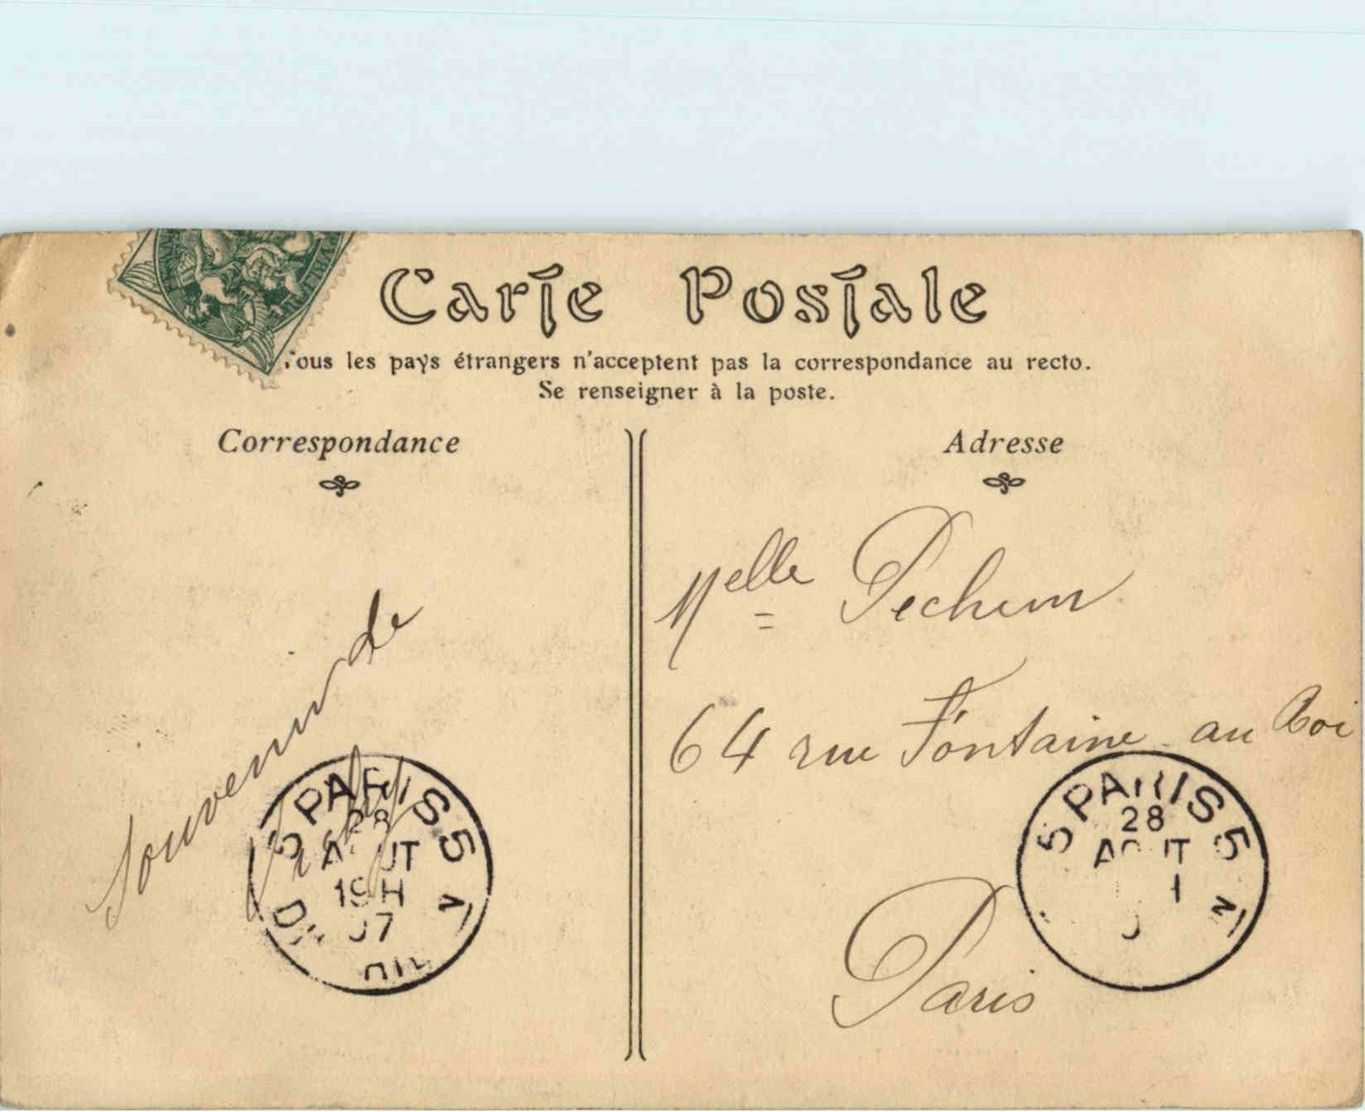 Carte Postale
ous les pays étrangers n'acceptent pas la correspondance au recto.
Se renseigner à la poste.
Correspondance
Souvenir de
Vichy
5 PARIS 5
28
AOUT
19H
07
Adresse
Melle Pechem
64 rue Fontaine au Roi
Paris
5 PARIS 5
28
AOUT